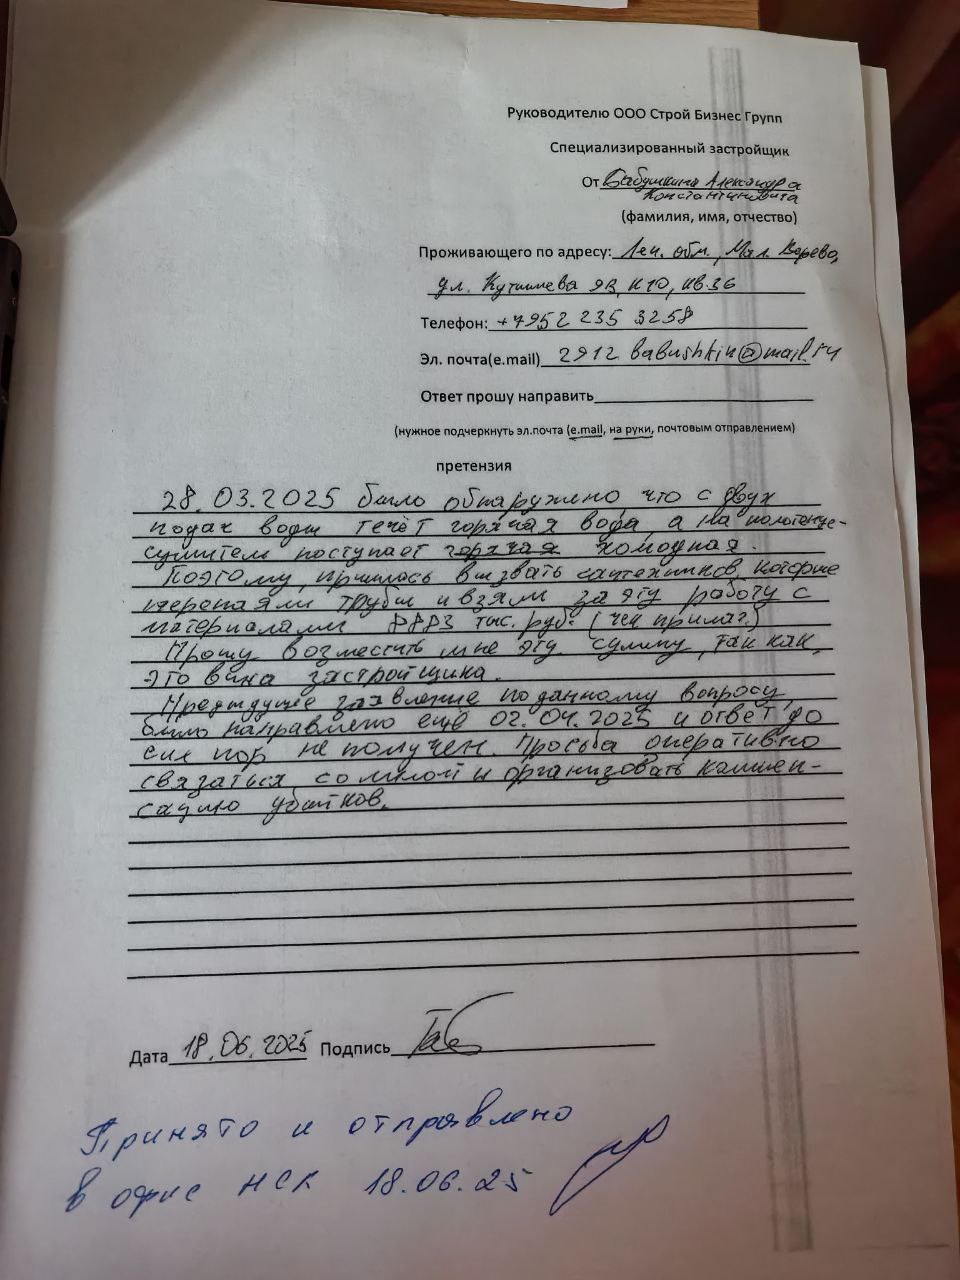 Руководителю ООО Строй Бизнес Групп
Специализированный застройщик
От Бабушкина Александра
Константиновича
(фамилия, имя, отчество)
Проживающего по адресу: Лен. обл., Мал. Верево,
ул. Кутышева 9В, к10, кв.36
Телефон: +7952 235 3258
Эл. почта(e.mail) 2912 babushkin@mail.ru
Ответ прошу направить
(нужное подчеркнуть эл.почта (e.mail, на руки, почтовым отправлением)
претензия
28.03.2025 было обнаружено что с двух
подач воды течёт горячая вода, а на полотенце-
сушитель поступает горячая холодная.
Поэтому, пришлось вызвать сантехников, которые
перепаяли трубы и взяли за эту работу с
материалами 8883 тыс. руб. (чек прилаг.)
Прошу возместить мне эту сумму, так как,
это вина застройщика.
Предыдущее заявление по данному вопросу,
было направлено ещё 02.04.2025 и ответ до
сих пор не получен. Просьба оперативно
связаться со мной и организовать компен-
сацию убытков.
Дата 18.06.2025 Подпись
Принято и отправлено
в офис НСК 18.06.25